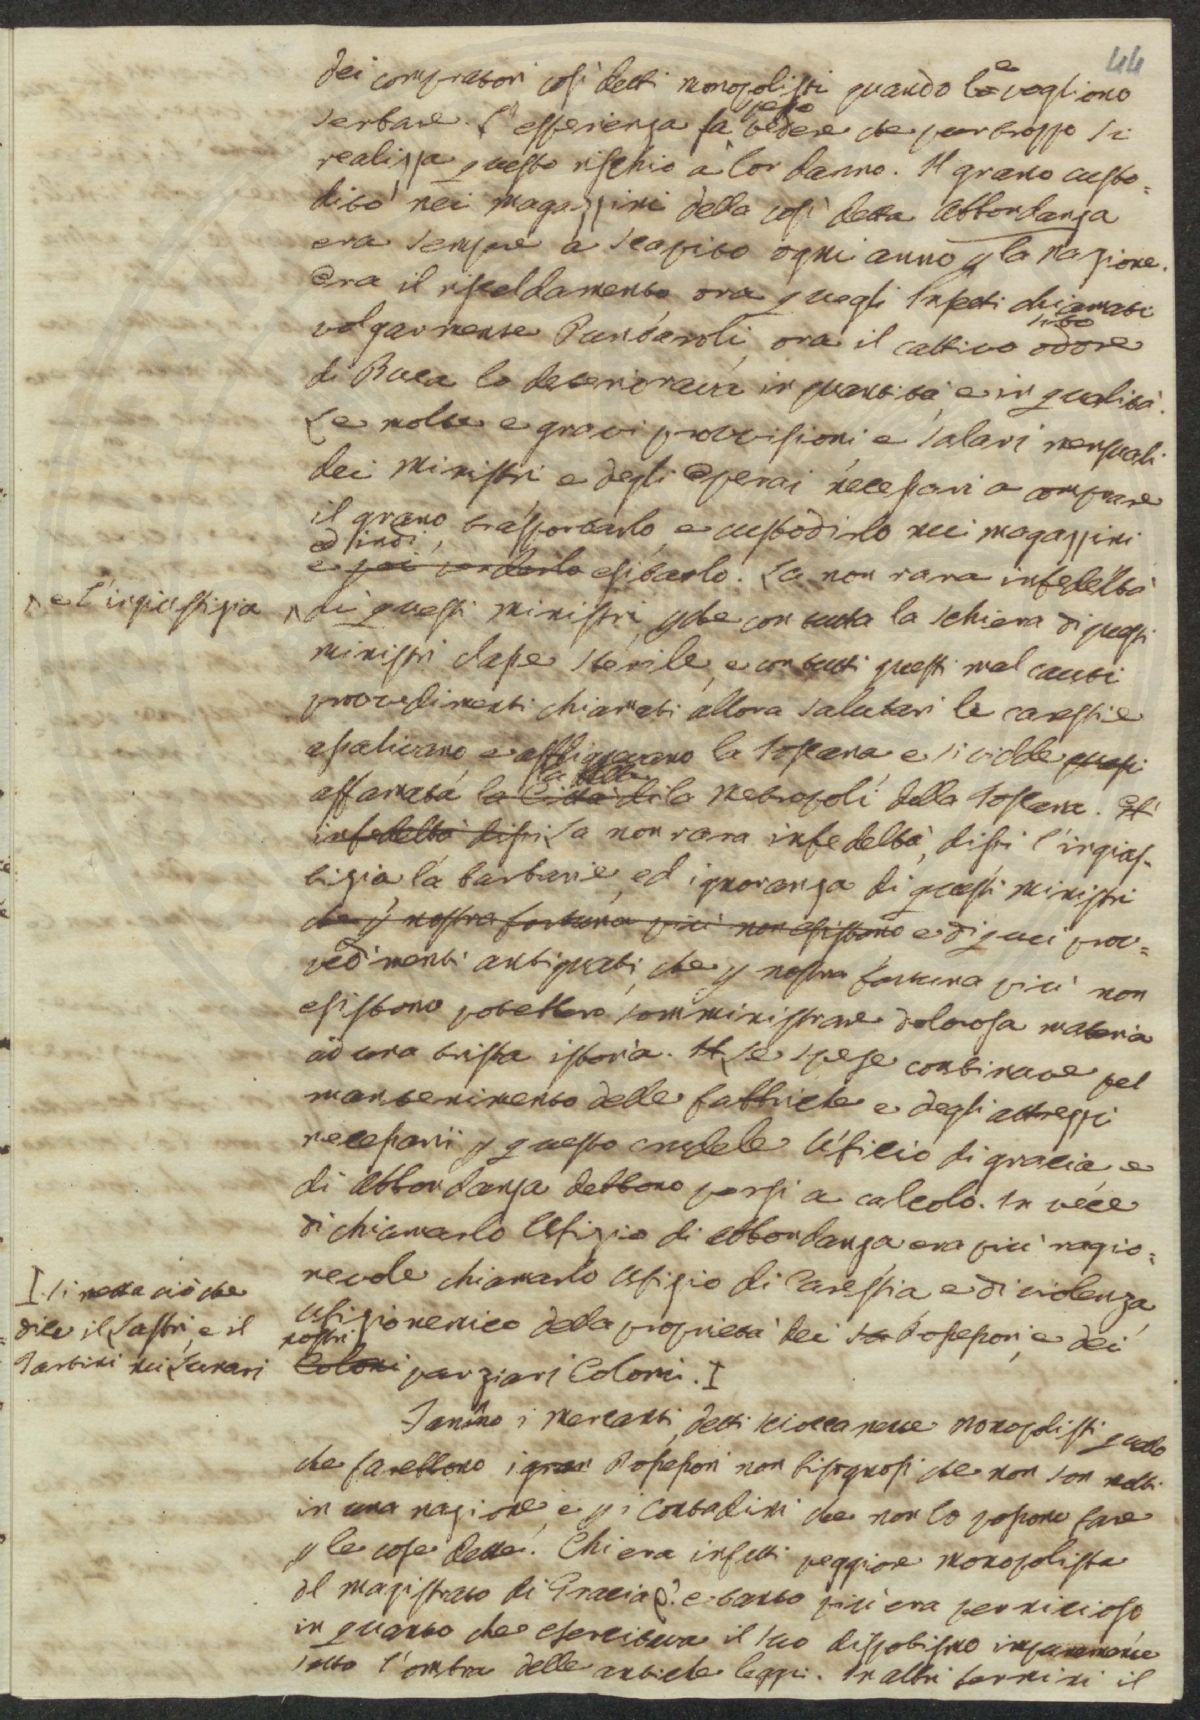 44
dei compratori così detti monopolisti quando le vogliono
serbare. L'esperienza fa spesso vedere che pur troppo si
realizza questo rischio a lor danno. Il grano custo=
dito nei magazzini della così detta Abbondanza
era sempre a scapito ogni anno p la Nazione.
Ora il riscaldamento ora quegli Insetti chiamati
volgarmente Puntaroli, ora il cattivo odore
di Buca lo deteriorava in quantità e in qualità.
Le molte e gravi provvisioni e salari mensuali
dei Ministri e degli Operai necessari a comprare
il grano, trasportarlo, e custodirlo nei magazzini
ed indi
e poi venderlo esitarlo. La non rara infedeltà
^ e l'ingiustizia ^ di questi ministri, p che con tutta la schiera di questi
ministri classe sterile, e con tutti questi mal cauti
provedimenti chiamati allora salutari le carestie
assalivano e affliggevano la Toscana e si vidde quasi
affamata la Città di la Metropoli della Toscana.
infedeltà dissi La non rara infedeltà, dissi l'ingius-
tizia la barbarie, ed ignoranza di questi ministri
che p nostra fortuna più non esistono e di quei prov=
vedimenti antiquati, che p nostra fortuna più non
esistono potettero somministrare dolorosa materia
ad una trista istoria. Le spese continave pel
mantenimento delle fabbriche e degli attrezzi
necessarii p questo crudele Ufficio di grascia e
di Abbondanza debbono porsi a calcolo. In vece
di chiamarlo Ufizio di Abbondanza era più ragio=
nevole chiamarlo Ufizio di Carestia e di violenza,
Ufizio nemico della proprietà dei Possessori, e dei
nostri
Coloni parziari Coloni. I
I Si metta ciò che
dice il Lastri, e il
Tartini nei Lunari
Fanno i Mercanti, detti scioccamente Monopolisti quello
che farebbono i gran Possessori non bisognosi che non son molti
in una nazione e p i Contadini che non lo possono fare
p le cose dette. Chi era infatti peggiore Monopolista
del magistrato di Grascia? e tanto più era pernicioso
in quanto che esercitava il suo dispotismo impunemente
sotto l'ombra delle antiche leggi. In altri termini il